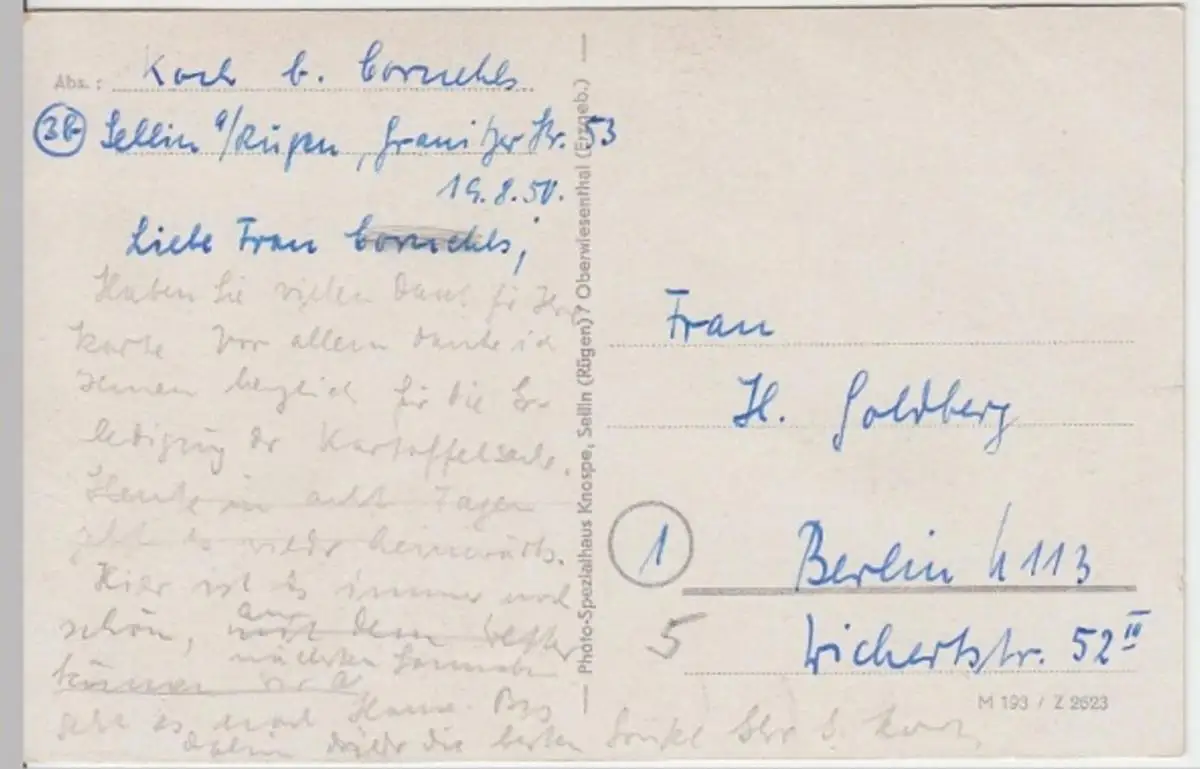 Abs.: Koch b. Cornehls
3b Sellin a/Rügen, Granitzer Str. 53
19.8.50.
Liebe Frau Cornehls,
Haben Sie vielen Dank für Ihre
Karte Vor allem danke ich
Ihnen herzlich für die Er-
ledigung der Kartoffelsache.
Heute in acht Tagen
geht es wieder heimwärts.
Hier ist es immer noch
schön, mit dem Wetter
am
nächsten Sonnabend
können wir
geht es nach Hause. Bis
dahin die besten Grüße Ihr Koch
Photo-Spezialhaus Knospe, Sellin (Rügen) / Oberwiesenthal (Erzgeb.)
Frau
H. Goldberg
1 Berlin N 113
5 Wichertstr. 52 III
M 193 / Z 2623